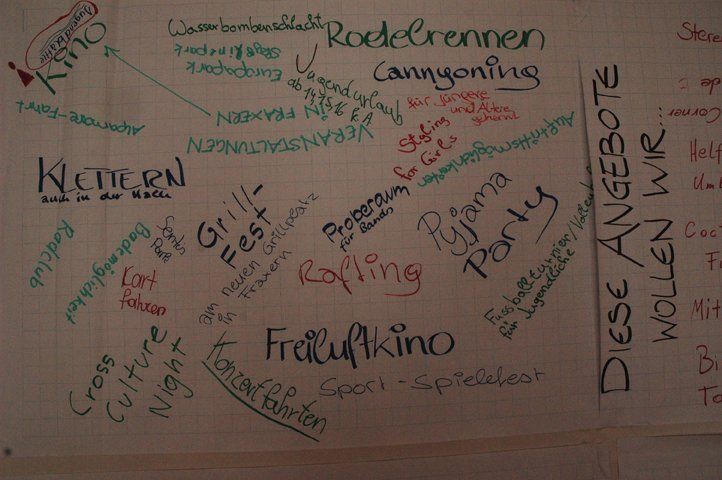 Jugendstätte
Kino
Wasserbombenschlacht
Rodelrennen
Skylinepark
Europapark
Cannyoning
Jugendurlaub
ab 14, 15, 16 k.A
für Jüngere
und Ältere
getrennt
VERANSTALTUNGEN
IN FRAXERN
Alpamare-Fahrt
Styling
for Girls
Auftrittsmöglichkeiten
KLETTERN
auch in der Halle
Grill-
Fest
am neuen Grillplatz
in Fraxern
Proberaum
für Bands
Pyjama
Party
Radclub
Bademöglichkeit
Kart
fahren
Rafting
Fussballturnier
für Jugendliche
Freiluftkino
Cross
Culture
Night
Konzertfahrten
Sport-Spielefest
DIESE ANGEBOTE
WOLLEN WIR...
Stere
de
Corner
Helf
Uml
Coc
Fr
Mit
Bi
To